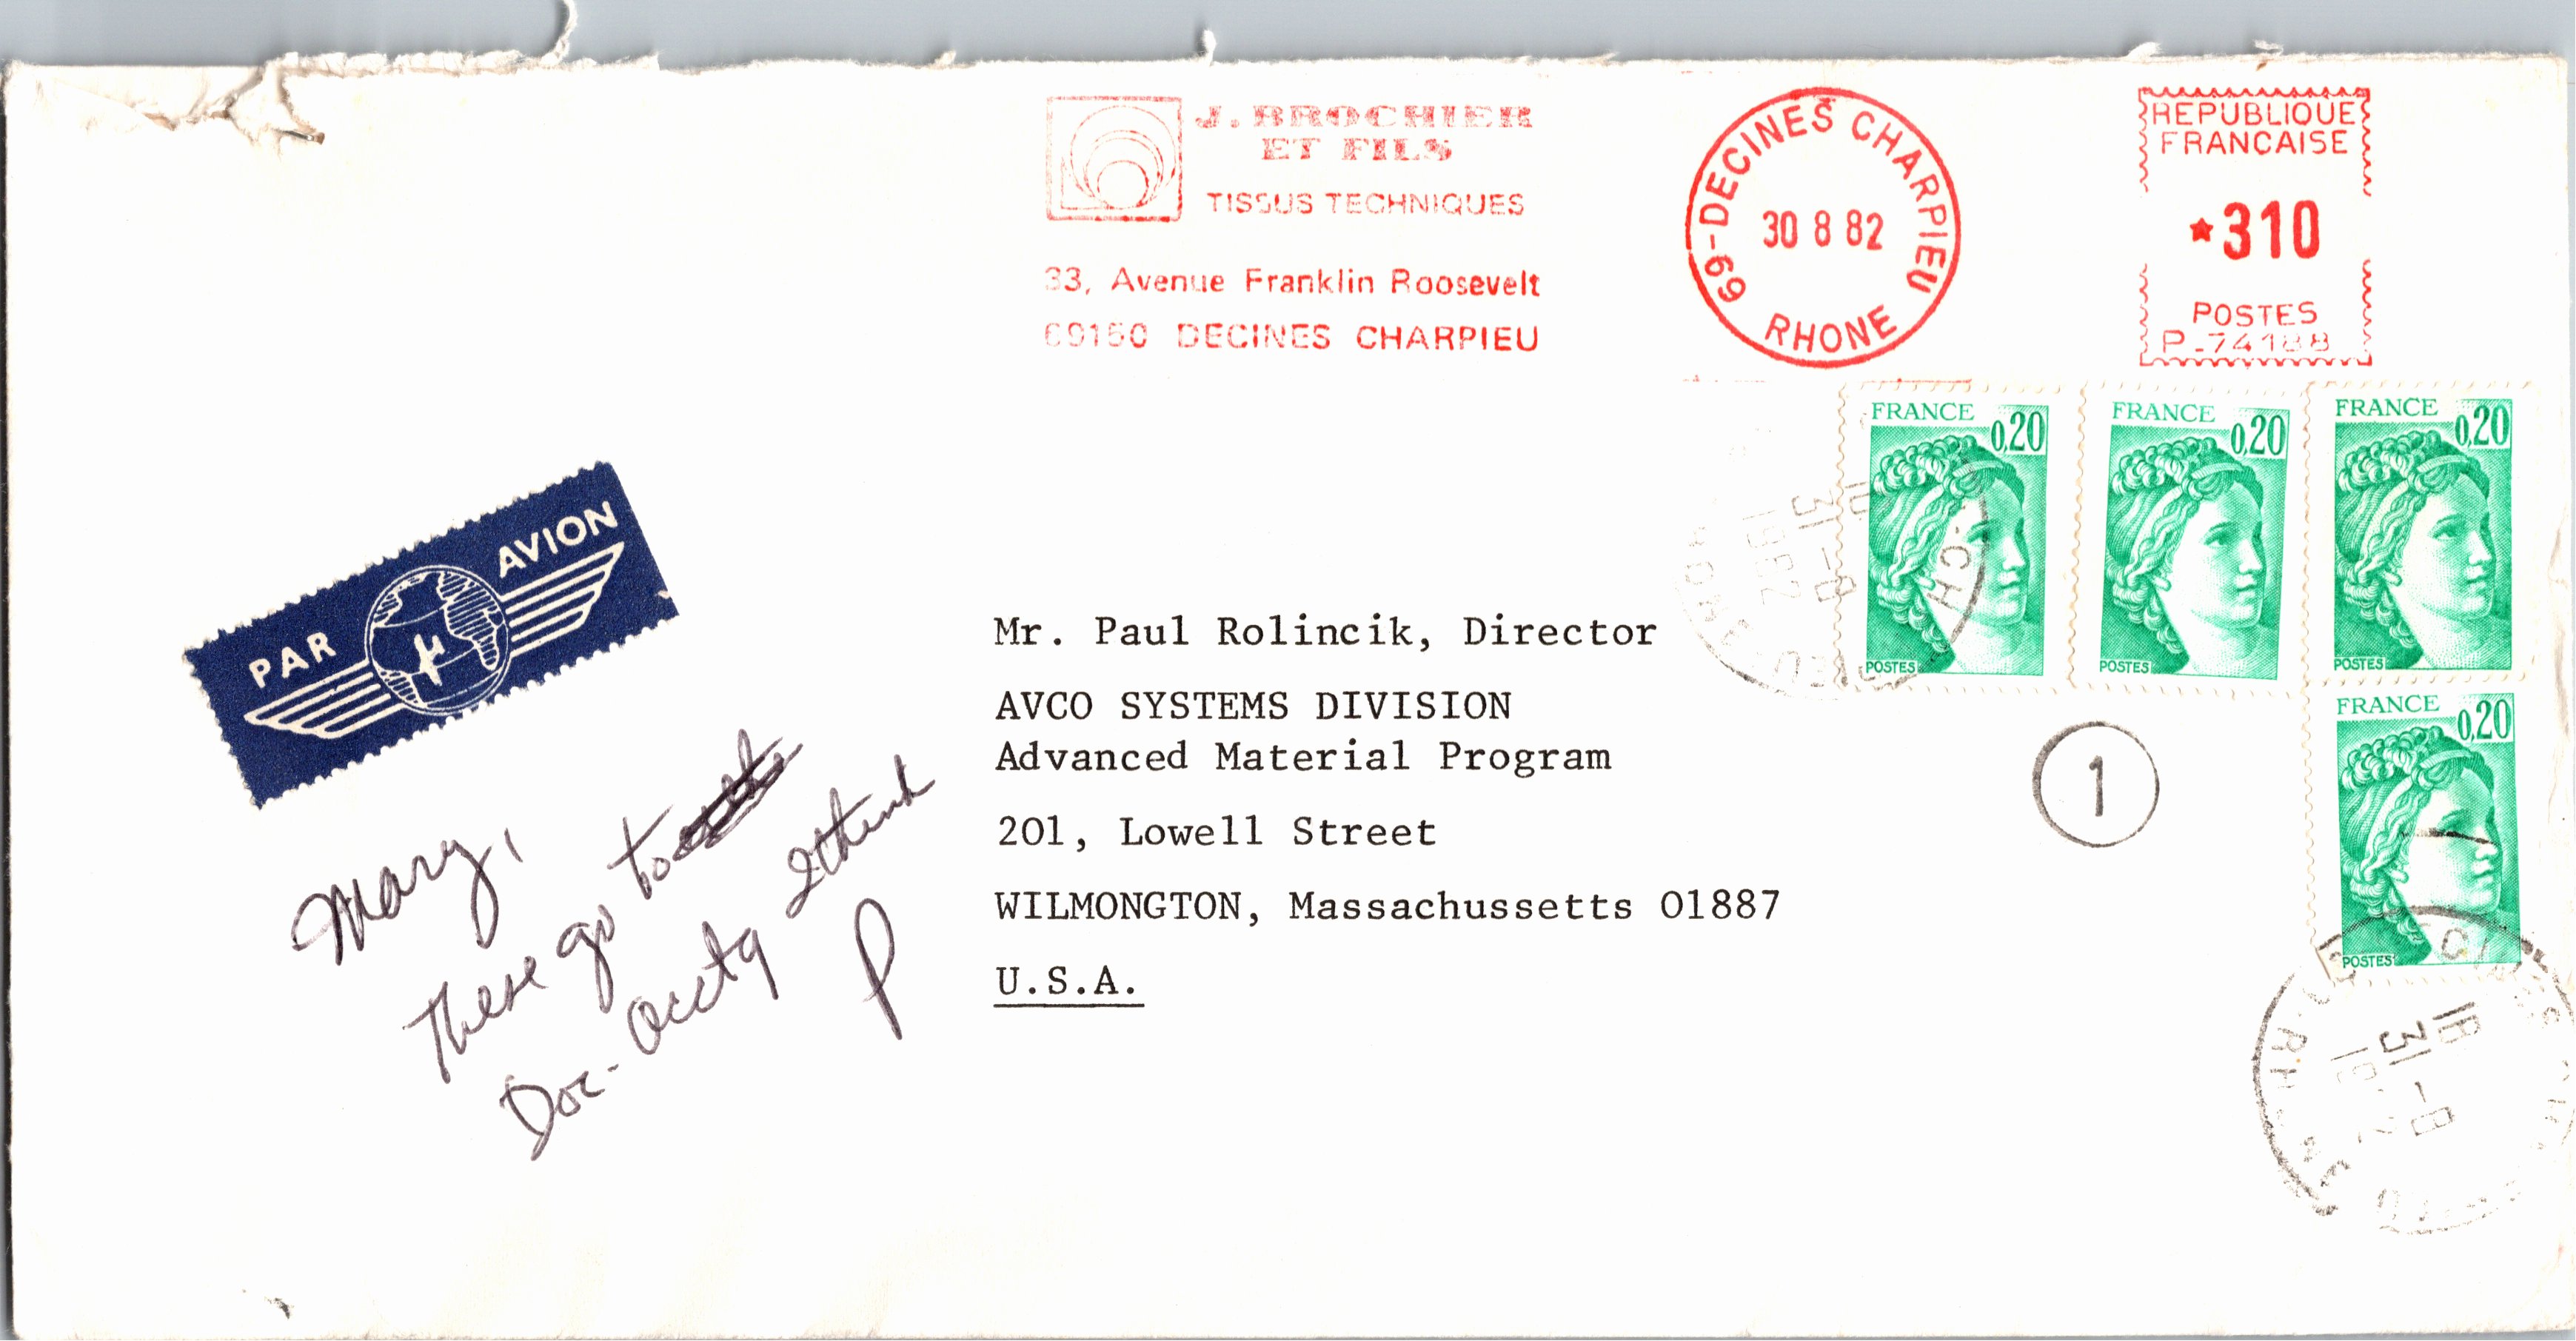 J. BROCHIER
ET FILS
TISSUS TECHNIQUES
33, Avenue Franklin Roosevelt
69150 DECINES CHARPIEU
69-DECINES CHARPIEU
30 8 82
RHONE
REPUBLIQUE
FRANCAISE
*310
POSTES
P_74188
FRANCE
0,20
POSTES
FRANCE
0,20
POSTES
FRANCE
0,20
POSTES
FRANCE
0,20
POSTES
31-8
1982
PAR AVION
Mr. Paul Rolincik, Director
AVCO SYSTEMS DIVISION
Advanced Material Program
201, Lowell Street
WILMONGTON, Massachussetts 01887
U.S.A.
1
Mary,
These go to
Doc-Acctg I think
P